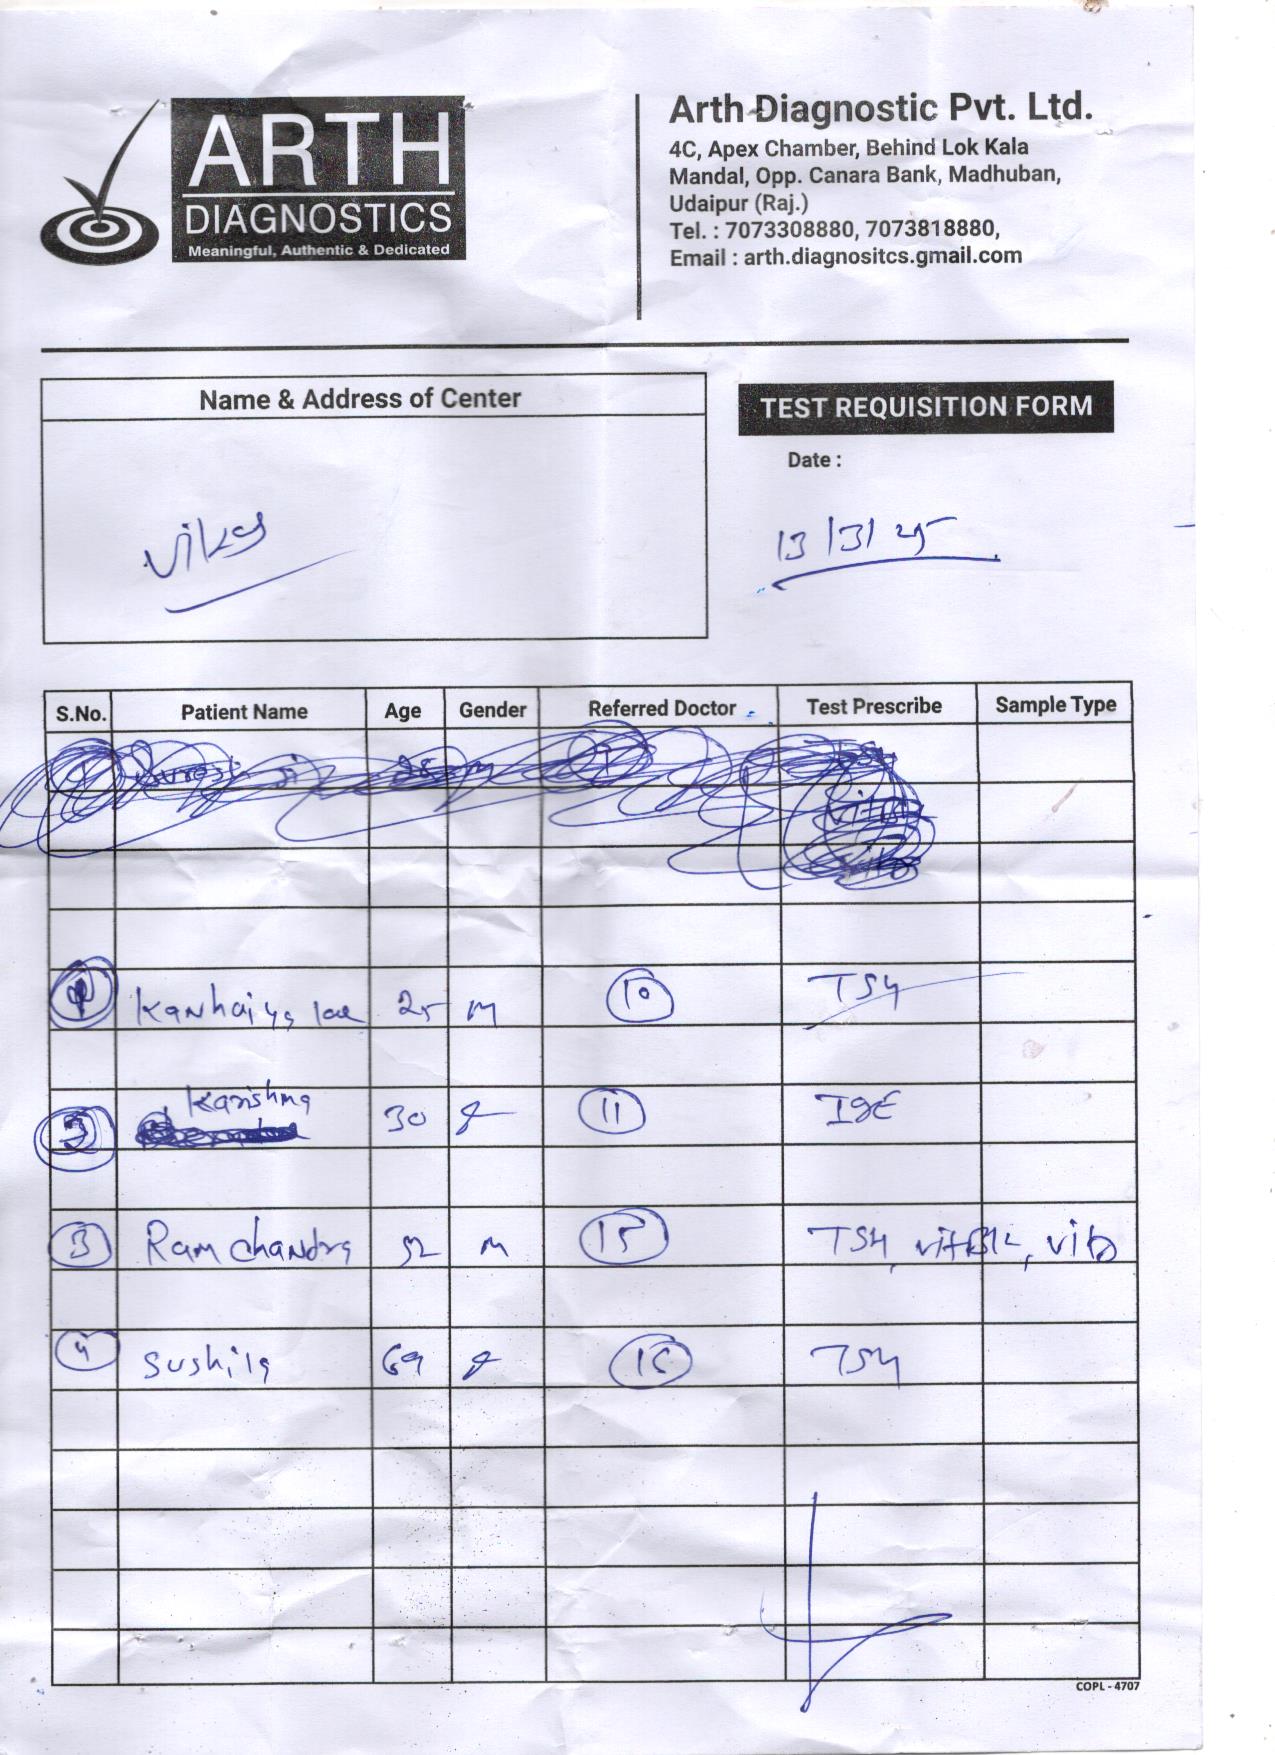 ARTH
DIAGNOSTICS
Meaningful, Authentic & Dedicated
Arth Diagnostic Pvt. Ltd.
4C, Apex Chamber, Behind Lok Kala
Mandal, Opp. Canara Bank, Madhuban,
Udaipur (Raj.)
Tel. : 7073308880, 7073818880,
Email : arth.diagnositcs.gmail.com
Name & Address of Center
TEST REQUISITION FORM
Date :
Vikas
13/3/25
S.No. Patient Name Age Gender Referred Doctor Test Prescribe Sample Type
Kanhaiya lal 25 M 10 TSH
Karishma 30 F 11 IgE
3 Ram Chandra 52 M 15 TSH, vitB12, vitD
4 Sushila 69 F 16 TSH
COPL - 4707